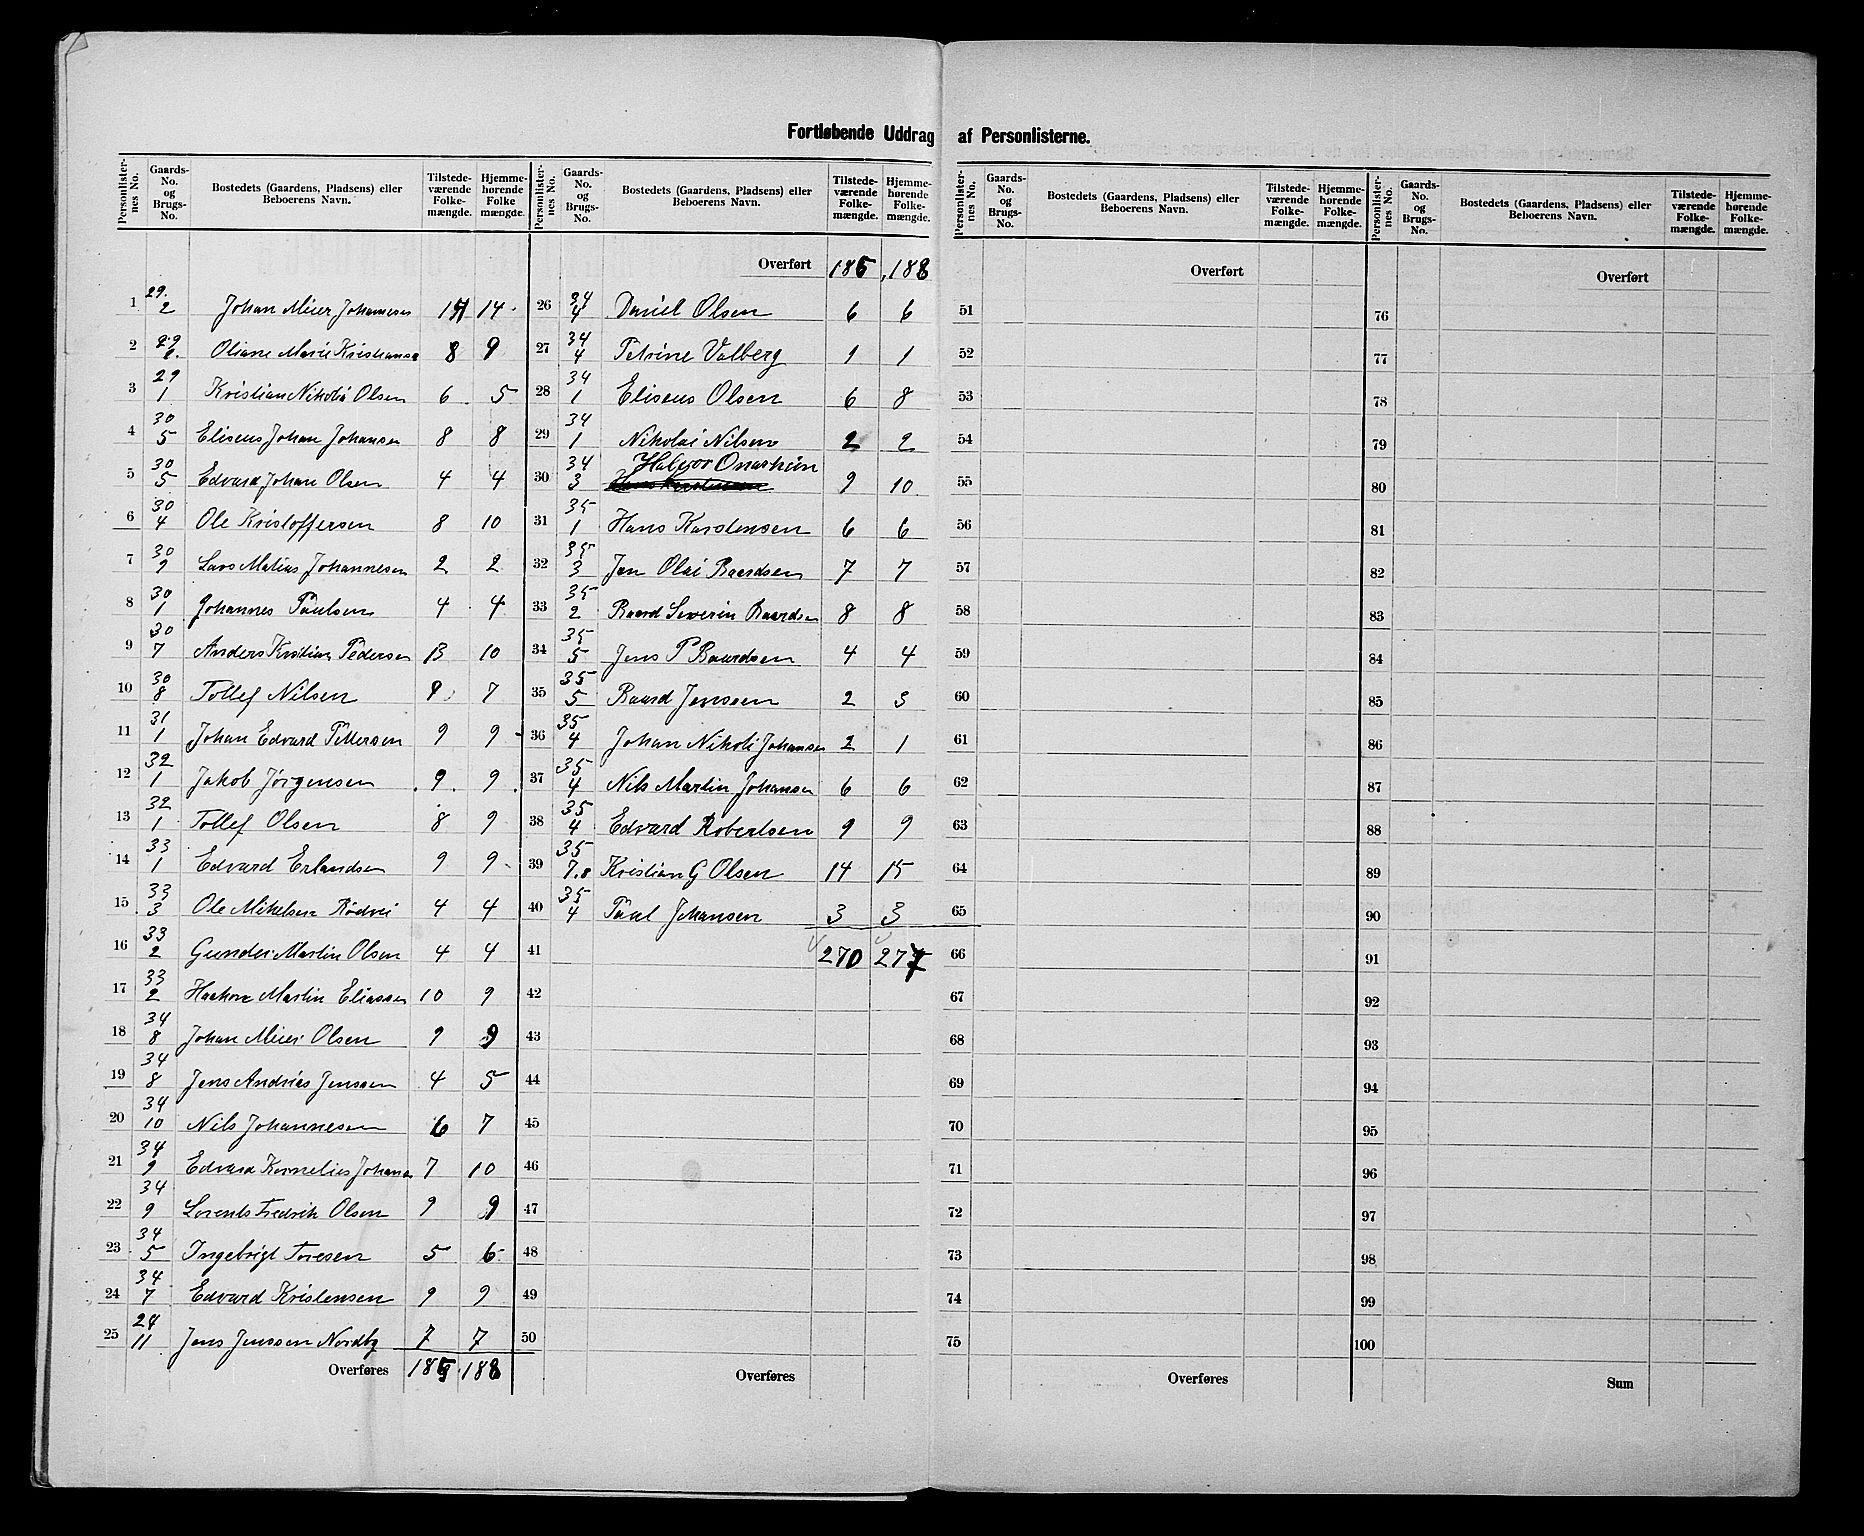 Fortløbende Uddrag af Personlisterne.
Personlister-nes No. Gaards-No. og Brugs-No. Bostedets (Gaardens, Pladsens) eller Beboerens Navn. Tilstede-værende Folke-mængde. Hjemme-hørende Folke mængde.
1 29. 2 Johan Meier Johannesen 14
2 29 Oliane Marie Kristiansen 8 9
3 29 1 Kristian Nikolai Olsen 6 5
4 30 5 Eliseus Johan Johansen 8 8
5 30 5 Edvard Johan Olsen 4 4
6 30 4 Ole Kristoffersen 8 10
7 30 9 Lars Matias Johannesen 2 2
8 30 1 Johannes Paulsen 4 4
9 30 7 Anders Kristian Pedersen 13 10
10 30 8 Tollef Nilsen 7
11 31 1 Johan Edvard Pettersen 9 9
12 32 1 Jakob Jørgensen 9 9
13 32 1 Tollef Olsen 8 9
14 33 1 Edvard Erlandsen 9 9
15 33 3 Ole Mikelsen Rødvei 4 4
16 33 2 Gunder Martin Olsen 4 4
17 33 2 Haakon Martin Eliassen 10 9
18 34 8 Johan Meier Olsen 9 9
19 34 8 Jens Andrias Jenssen 4 5
20 34 10 Nils Johannesen 6 7
21 34 9 Edvard Kornelius Johansen 7 10
22 34 9 Lorents Fredrik Olsen 9 9
23 34 5 Ingebrigt Toresen 5 6
24 34 7 Edvard Kristensen 9 9
25 24 11 Jens Jenssen Nordby 7 7
Overføres 185 188
Personlister-nes No. Gaards-No. og Brugs-No. Bostedets (Gaardens, Pladsens) eller Beboerens Navn. Tilstede-værende Folke-mængde. Hjemme-hørende Folke-mængde.
Overført 185 188
26 34 4 Daniel Olsen 6 6
27 34 4 Petrine Valberg 1 1
28 34 1 Eliseus Olsen 6 8
29 34 1 Nikolai Nilsen 2 2
30 34 3 Halvor Onarheim 9 10
31 35 1 Hans Karstensen 6 6
32 35 3 Jan Olai Baardsen 7 7
33 35 2 Baard Severin Baardsen 8 8
34 35 5 Jens P Baardsen 4 4
35 35 5 Baard Jenssen 2 3
36 35 4 Johan Nikolai Johansen 2 1
37 35 4 Nils Martin Johansen 6 6
38 35 4 Edvard Robertsen 9 9
39 35 7.8 Kristian G Olsen 14 15
40 35 4 Paul Johansen 3 3
41 270 277
42
43
44
45
46
47
48
49
50
Overføres
Personlister-nes No. Gaards-No. og Brugs-No. Bostedets (Gaardens, Pladsens) eller Beboerens Navn. Tilstede-værende Folke-mængde. Hjemme-hørende Folke-mængde.
Overført
51
52
53
54
55
56
57
58
59
60
61
62
63
64
65
66
67
68
69
70
71
72
73
74
75
Overføres
Personlister-nes No. Gaards-No. og Brugs-No. Bostedets (Gaardens, Pladsens) eller Beboerens Navn. Tilstede-værende Folke-mængde. Hjemme-hørende Folke-mængde.
Overført
76
77
78
79
80
81
82
83
84
85
86
87
88
89
90
91
92
93
94
95
96
97
98
99
100
Sum